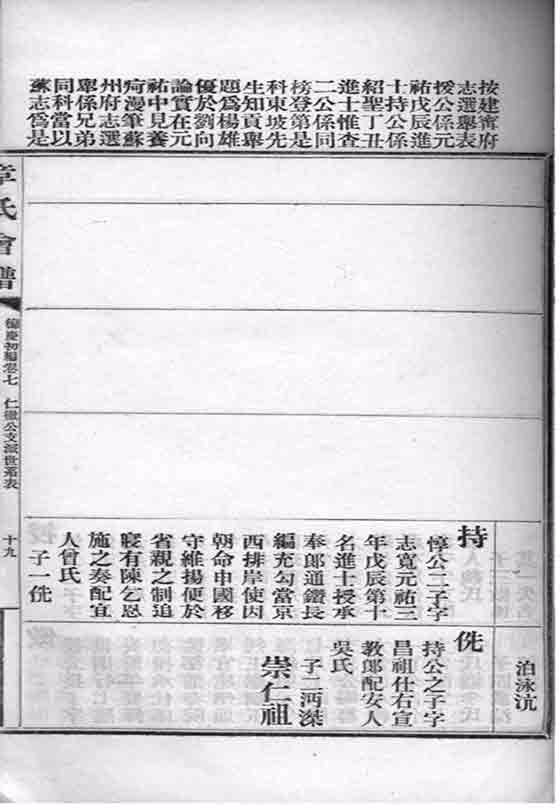 按建甯府
志選舉表
援公係元
祐戊辰進
士持公係
紹聖丁丑
進士惟查
二公係同
榜登第是
科東坡先
生知貢舉
題爲楊雄
優於劉向
論實在元
祐中見養
疴漫筆蘇
州府志選
舉係兄弟
同科當以
蘇志爲是
泊泳沆
持
惇公二子字
志寬元祐三
年戊辰第十
名進士授承
奉郎通鑑長
編充勾當京
西排岸使因
朝命申國移
守維揚便於
省親之制追
寢有陳乞恩
施之奏配宜
人曾氏
子一侁
侁
持公之子字
昌祖仕右宣
教郎配安人
吳氏
子二河滐
崇仁祖
章氏會譜
慶初編卷七 仁徹公支派世系表
十九